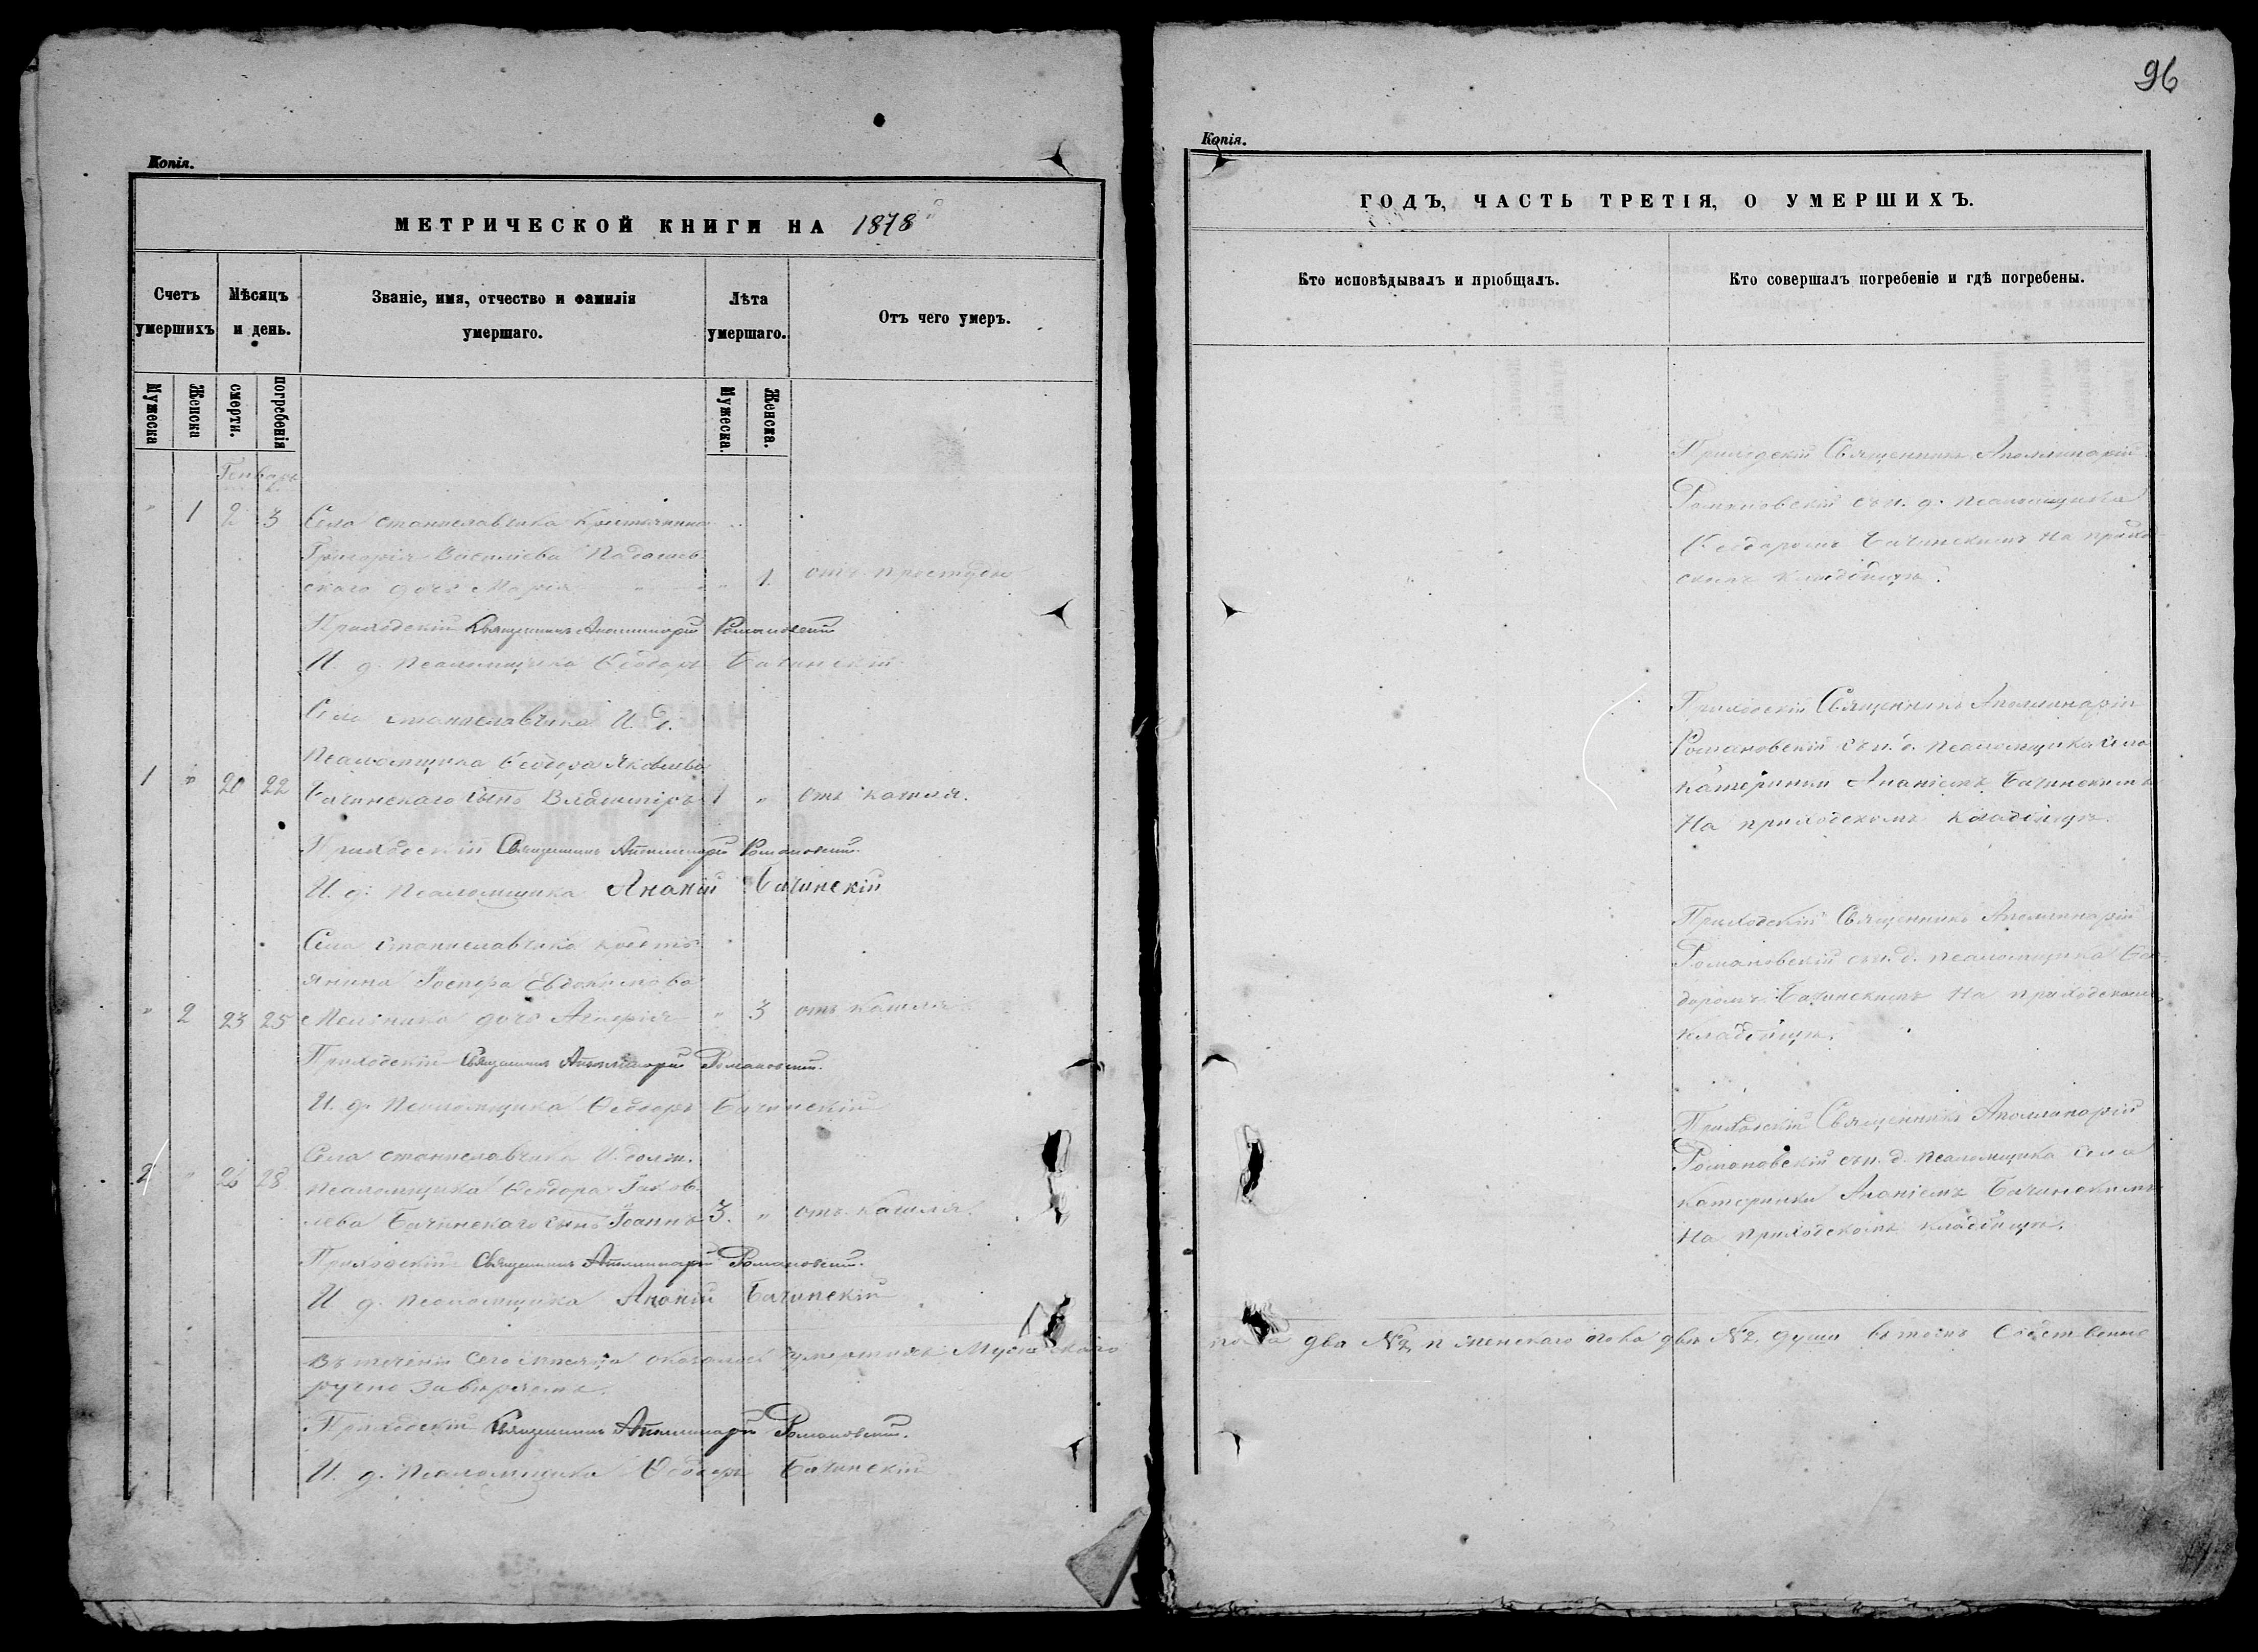 Копія.
МЕТРИЧЕСКОЙ КНИГИ НА 1878
Счетъ умершихъ
Мѣсяцъ и день.
Званіе, имя, отчество и фамилія умершаго.
Лѣта умершаго.
Отъ чего умеръ.
Мужеска
Женска
смерти.
погребенія
Мужеска.
Женска.
Генварь
" 1 2 3 Села Станиславчика Крестьянина
Григорія Василіева
скаго дочь Марія " 1. отъ простуды
Приходскій Священникъ Аполлинарій Романовскій
И. д. Псаломщика Ѳеодоръ Бачинскій.
Села Станиславчика И. д.
Псаломщика Ѳеодора Яковлева
1 " 20 22 Бачинскаго сынъ Владиміръ 1 " отъ кашля.
Приходскій Священникъ Аполлинарій Романовскій.
И. д. Псаломщика Ананій Бачинскій
Села Станиславчика крестьянина Евдокимова
" 2 23 25 Мельника дочь " 3 отъ кашля
Приходскій Священникъ Аполлинарій Романовскій.
И. д. Псаломщика Ѳеодоръ Бачинскій
Села Станиславчика И. долж.
2 " 26 28 Псаломщика Ѳеодора Іаков-
лева Бачинскаго сынъ Іоаннъ 3. " отъ кашля.
Приходскій Священникъ Аполлинарій Романовскій.
И. д. Псаломщика Ананій Бачинскій
Въ теченіи сего мѣсяца оказалось умершихъ Мужескаго
ручно завѣряемъ.
Приходскій Священникъ Аполлинарій Романовскій.
И. д. Псаломщика Ѳеодоръ Бачинскій
96
Копія.
ГОДЪ, ЧАСТЬ ТРЕТІЯ, О УМЕРШИХЪ.
Кто исповѣдывалъ и пріобщалъ.
Кто совершалъ погребеніе и гдѣ погребены.
Приходскій Священникъ Аполлинарій
Романовскій съ и. д. псаломщика
Ѳеодоромъ Бачинскимъ На приход-
скомъ кладбищѣ.
Приходскій Священникъ Аполлинарій
Романовскій съ и. д. псаломщика села
Катеринки Ананіемъ Бачинскимъ
На приходскомъ кладбищѣ.
Приходскій Священникъ Аполлинарій
Романовскій съ и. д. псаломщика Ѳео-
доромъ Бачинскимъ На приходскомъ
кладбищѣ.
Приходскій Священникъ Аполлинарій
Романовскій съ и. д. псаломщика села
Катеринки Ананіемъ Бачинскимъ
На приходскомъ кладбищѣ.
два №2, и женскаго пола двѣ №2 души въ томъ Собственно